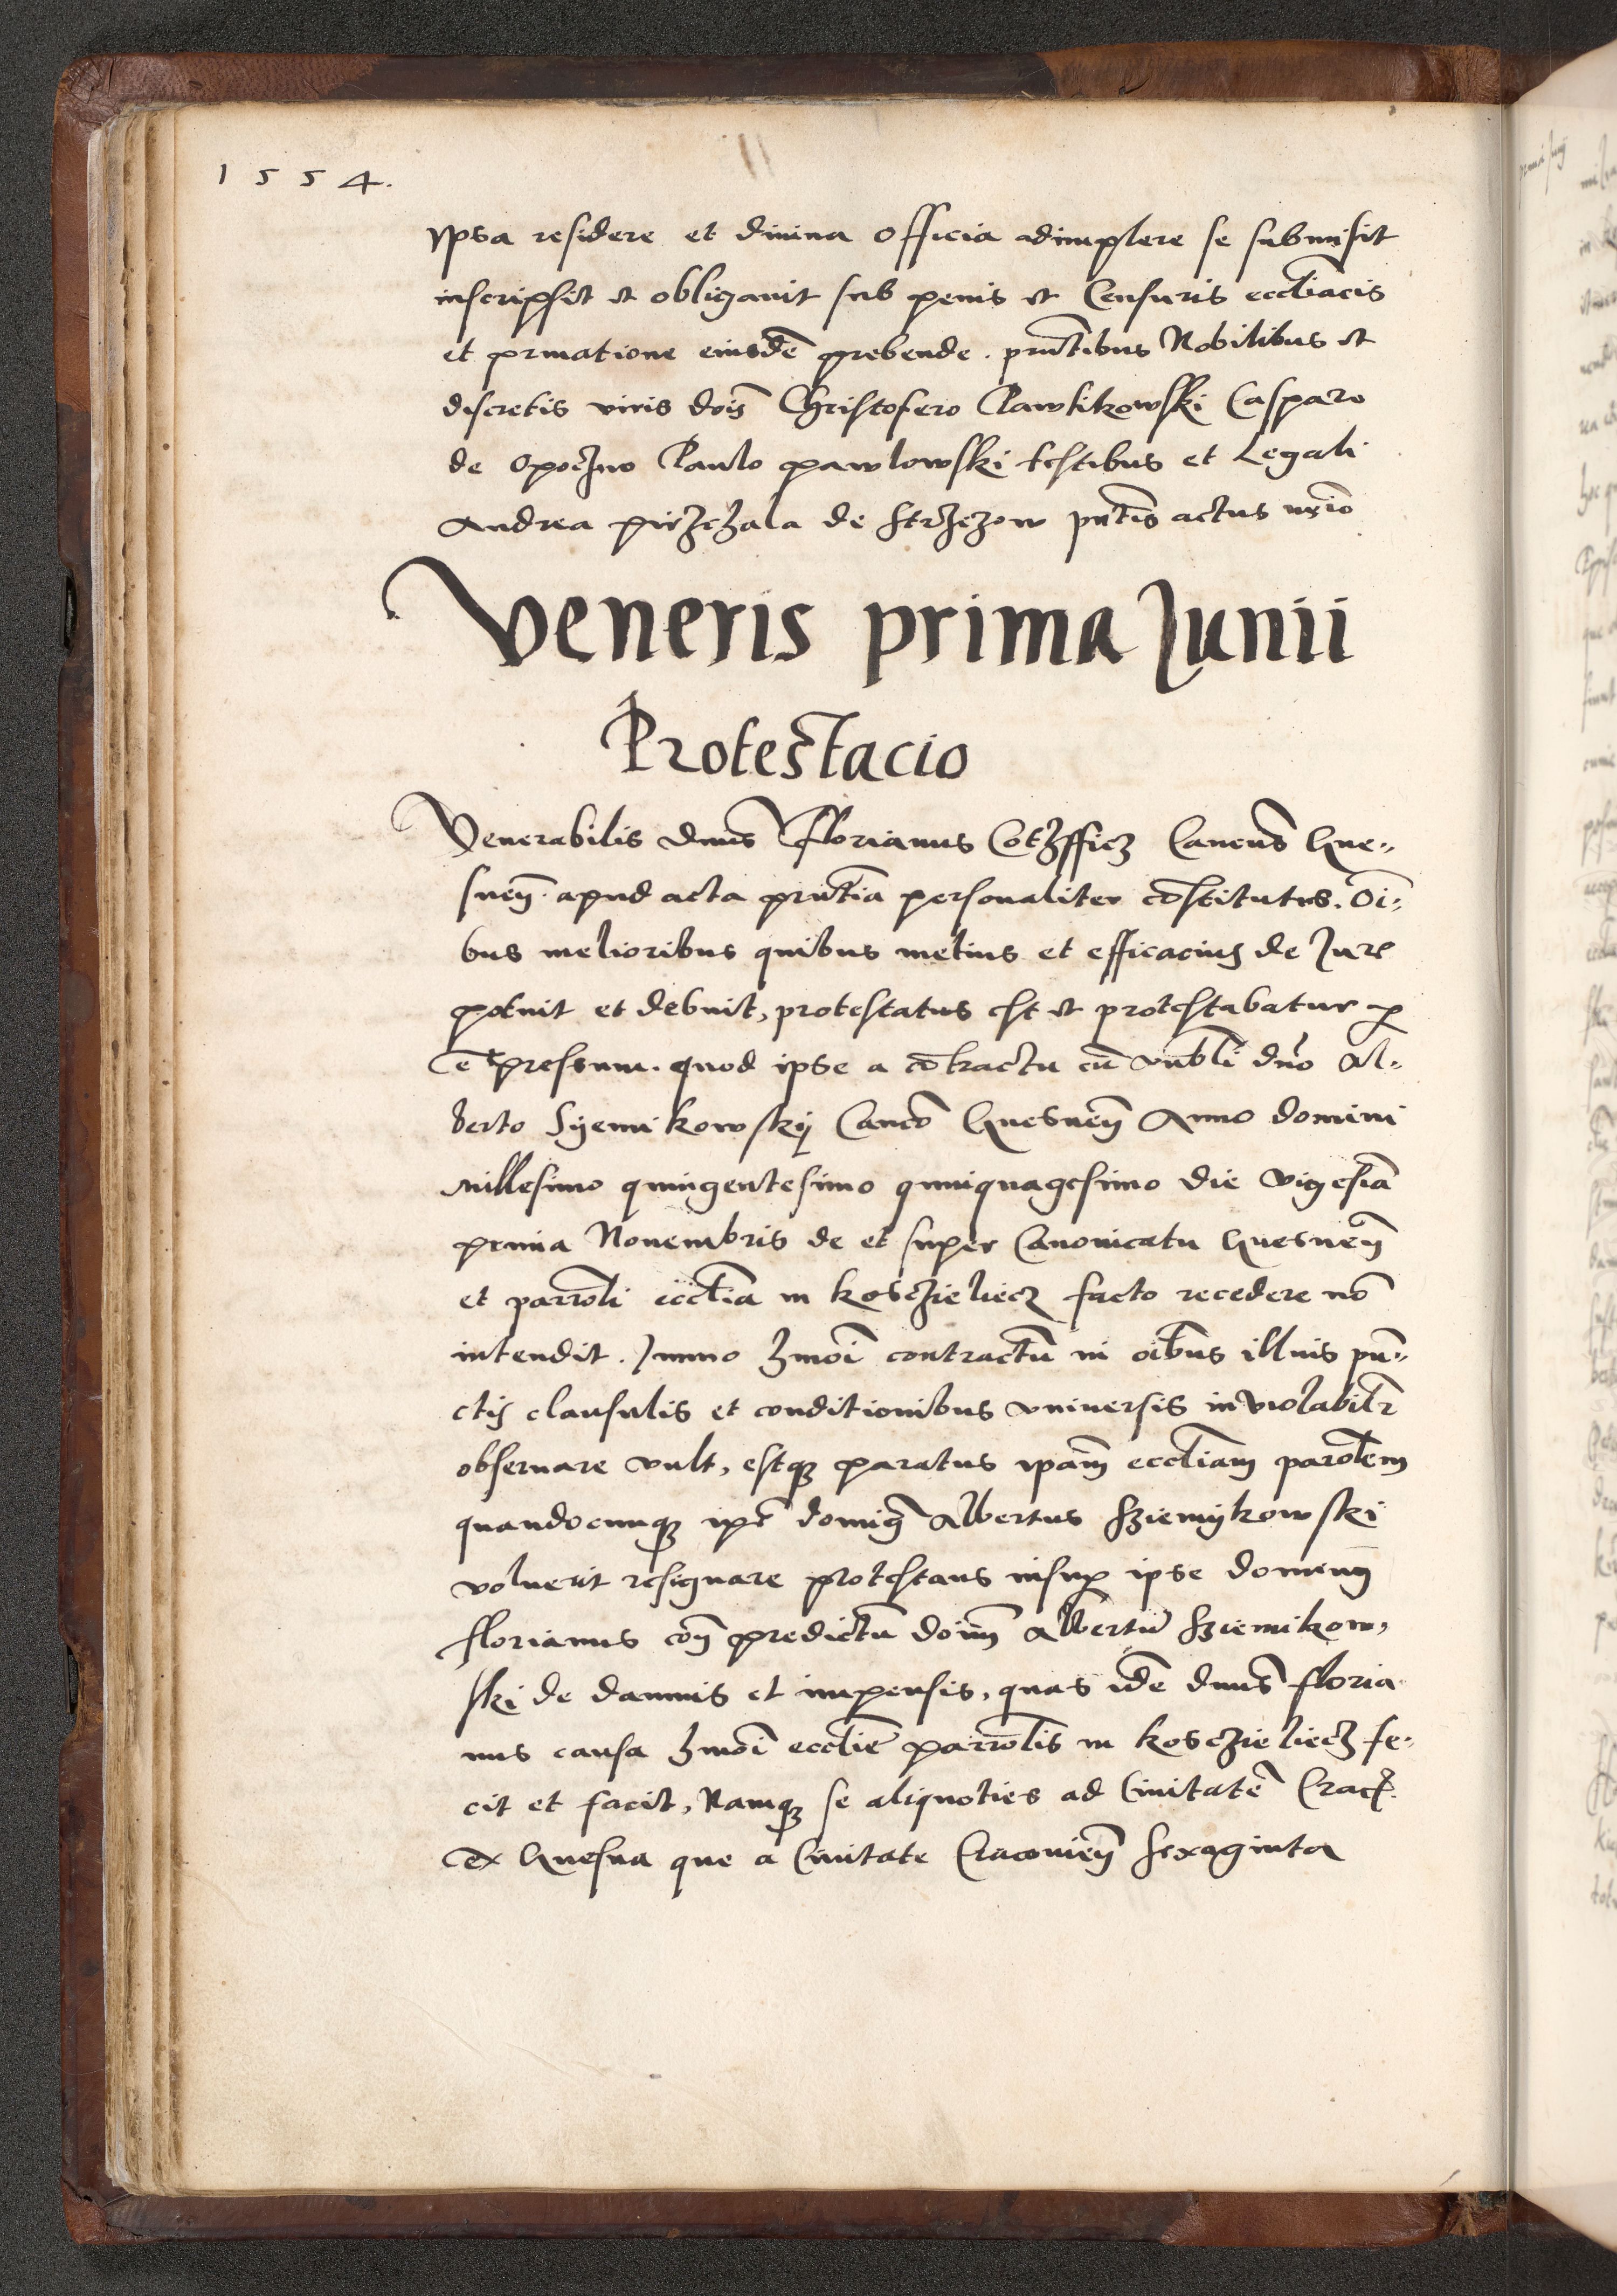 1554.
ypsa residere et diuina officia adimplere se submisit
inscripsit et obligauit sub penis et Censuris eccl̄iacis
et priuatione eiusdē prebende. prn̄tibus Nobilibus et
discretis viris dn̄is Christofero Pawlikowski Casparo
de Opoczno Paulo pawlowski testibus et Legali
Andrea pirzchala de Strzezow pn̄tis actus
Veneris prima Junii
Protestacio
Venerabilis dn̄us Florianus Canc̄us Gne-
snen̄. apud acta prn̄tia personaliter cōstitutus. Oī-
bus melioribus quibus melius et efficacius de Jure
potuit et debuit, protestatus est et protestabatur
expressum. quod ipse a cōtractu cū vn̄bli dn̄o Al-
berto Syemikowskij Canc̄o Gnesnen̄ Anno domini
millesimo quingentesimo quinquagesimo die vigesiā
prima Nouembris de et super Canonicatu Gnesnen̄
et parrōli eccl̄ia in Kosczieliecz facto recedere nō
intendit. Immo hmōi contractū in oībus illius pū-
ctis clausulis et conditionibus vniuersis inviolabilr̄
obseruare vult, estqz paratus ipam̄ eccl̄iam parōlem
quandocunqz ipē domin9 Albertus Sziemykowski
voluerit resignare protestans insup ipse dominus
florianus con̄ predictū doim̄ Albertū Sziemikow-
ski de damnis et impensis, quas idē dn̄us floria-
nus causa hmōi eccl̄ie parrōlis in Kosczieliecz fe-
cit et facit, Namqz se aliquoties ad Ciuitatē Crac̄.
ex Gnesna que a Ciuitate Cracouien̄ sexaginta